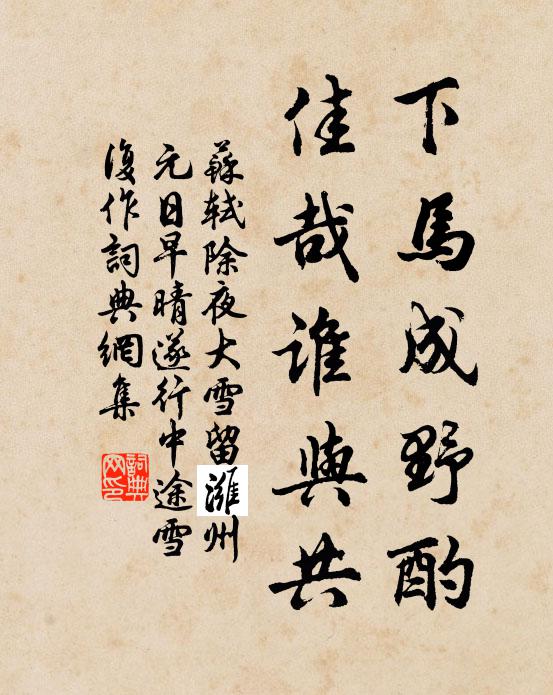 下馬成野酌
佳哉誰與共
蘇軾除夜大雪留濰州
元日早晴遂行中途雪
復作詞典網集
詞典網印